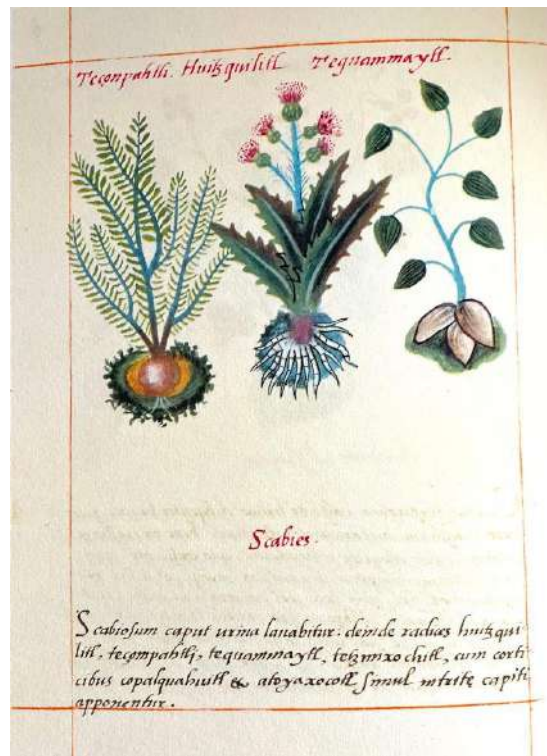 Teçonpahtli. Huitzquilitl Tequammaytl.
Scabies.
Scabiosum caput urina lanabitur. deinde radices huitzqui
litl, teçompahtli, tequammaytl, tetzmixochitl, cum corti
cibus copalquahuitl & atoyaxocotl simul intrite capiti
apponentur.